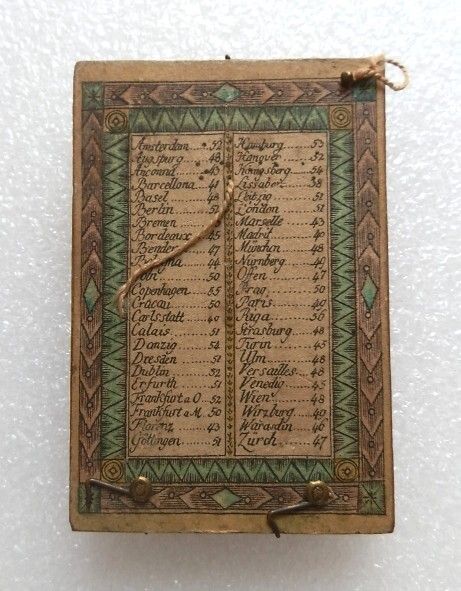 Amsterdam 52
Augsburg 48
Anconna 43
Barcellona 41
Basel 48
Berlin 51
Bremen
Bordeaux 45
Bender 47
44
Cöln 50
Copenhagen 55
Cracau 50
Carlsstatt 40
Calais 51
Danzig 54
Dresden 51
Dublin 52
Erfurth 51
Frankfurt a. O. 52
Frankfurt a. M. 50
Florenz 43
Göttingen 51
Hamburg 53
Hanover 52
Königsberg 54
Lissabon 38
Leibzig 51
London 51
Marseille 43
Madrit 40
München 48
Nürnberg 49
Offen 47
Prag 50
Paris 49
Riga 56
Strasburg 48
Turin 45
Ulm 48
Versailles 48
Venedig 45
Wien 48
Würzburg 49
Warasdin 46
Zürch 47